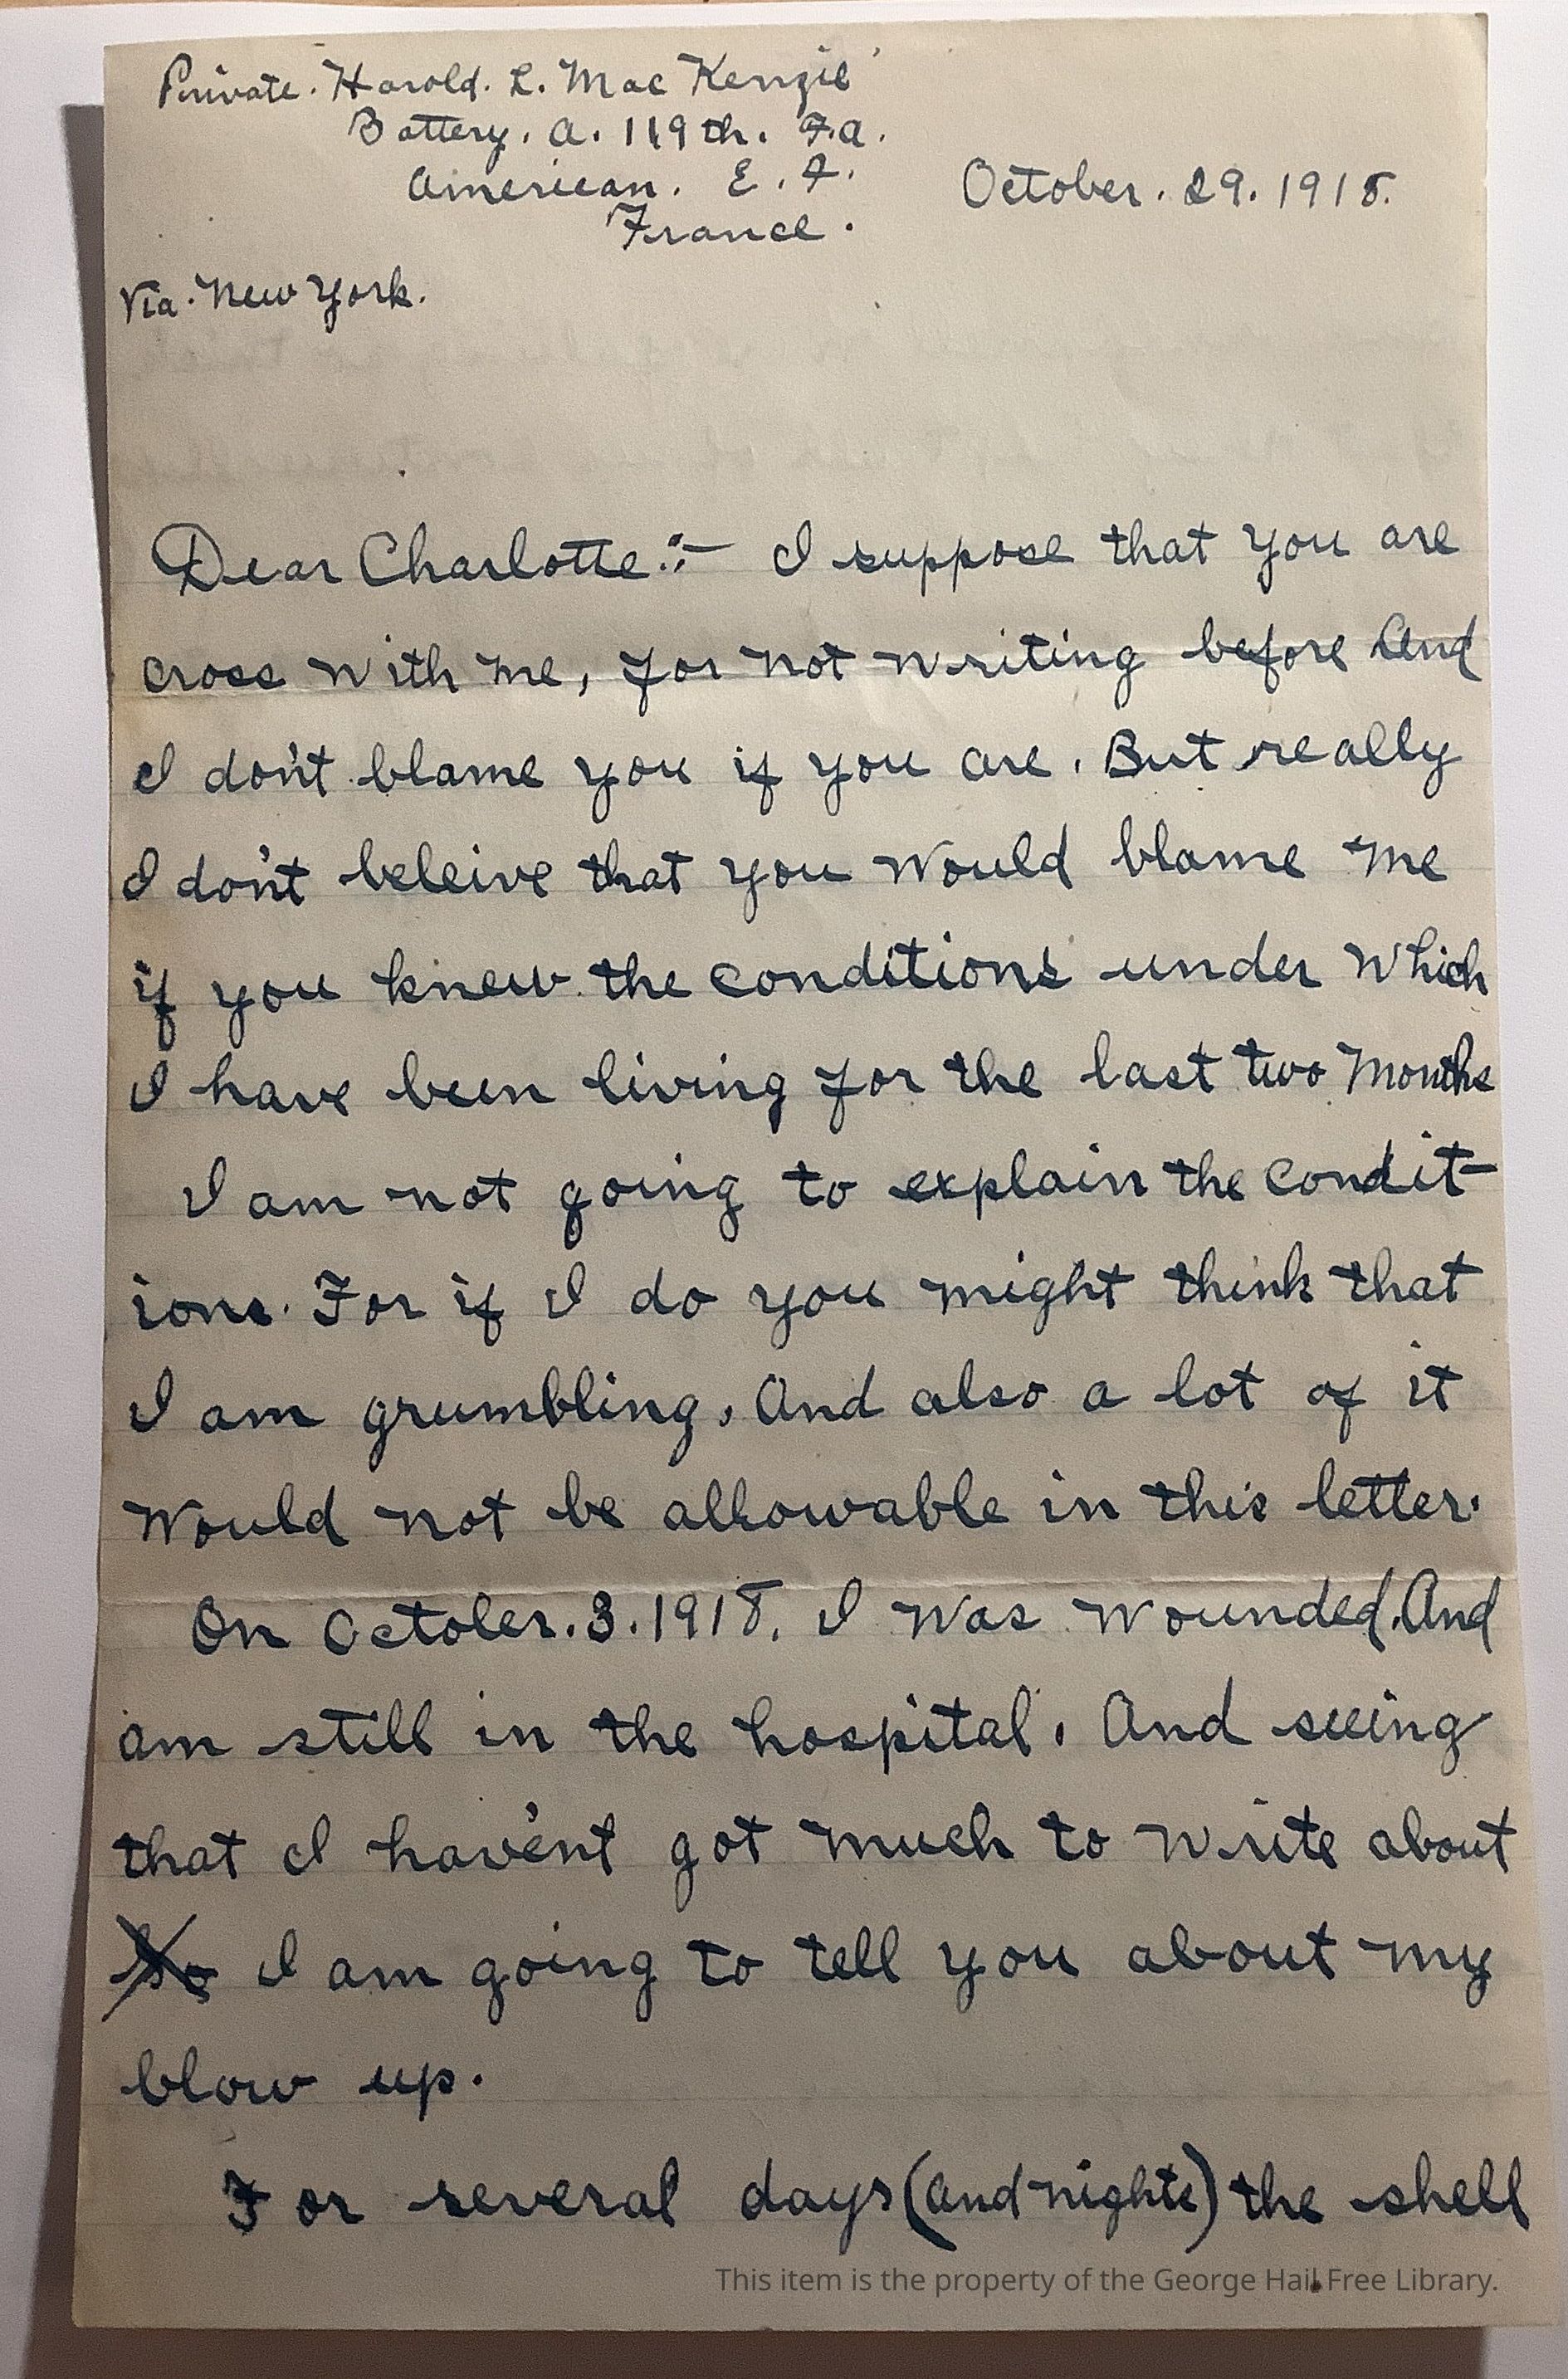 Private. Harold. L. Mac Kenzie
Battery. A. 119th. F.A.
American. E. F.
France.
October. 29. 1918.
Via. New York.
Dear Charlotte:- I suppose that you are
cross with me, for not writing before And
I don't blame you if you are. But really
I don't beleive that you Would blame me
if you knew the conditions under Which
I have been living for the last two Months
I am not going to explain the condit-
ions. For if I do you might think that
I am grumbling, And also a lot of it
Would not be allowable in this letter.
On October. 3. 1918. I Was Wounded. And
am still in the hospital. And seeing
that I hav'ent got much to Write about
So I am going to tell you about my
blow up.
For several days (and nights) the shell
This item is the property of the George Hail Free Library.